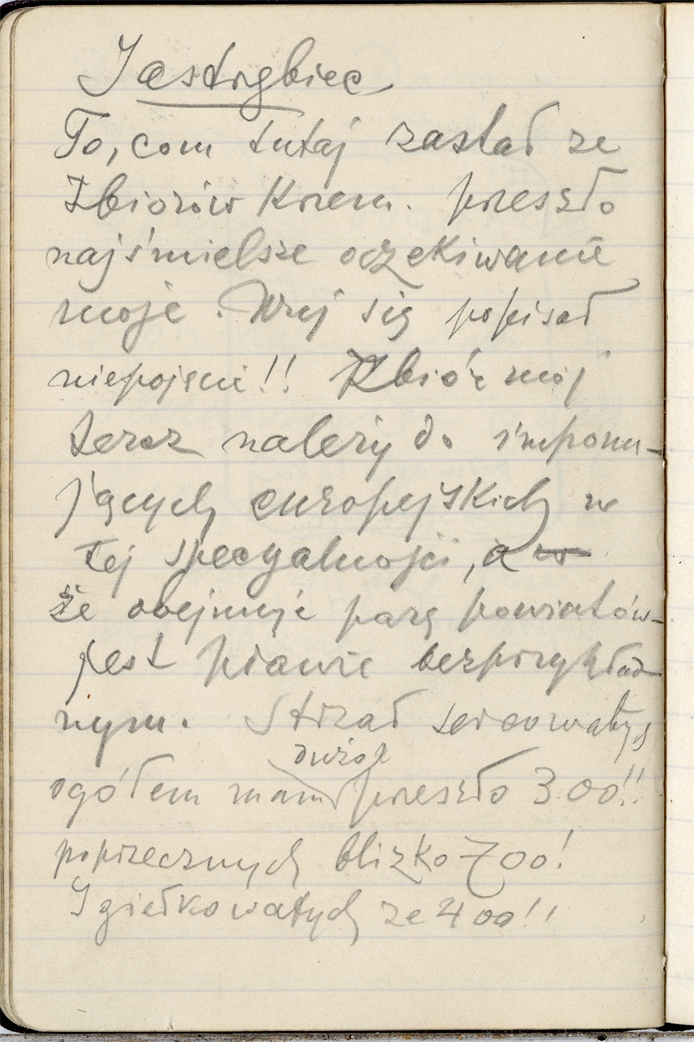 Jastrzębiec
To, com tutaj zastał ze
Zbiorów Krzem. przeszło
najśmielsze oczekiwanie
moje. Wuj się popisał
niepojęcie!! Zbiór mój
teraz należy do imponu-
jących europejskich w
tej specyalności, a w
że obejmuje parę powiatów
jest prawie bezprzykład
nym. Strzał sercowatych
dużych
ogółem mam przeszło 300!!
poprzecznych blizko 700!
Igiełkowatych ze 400!!